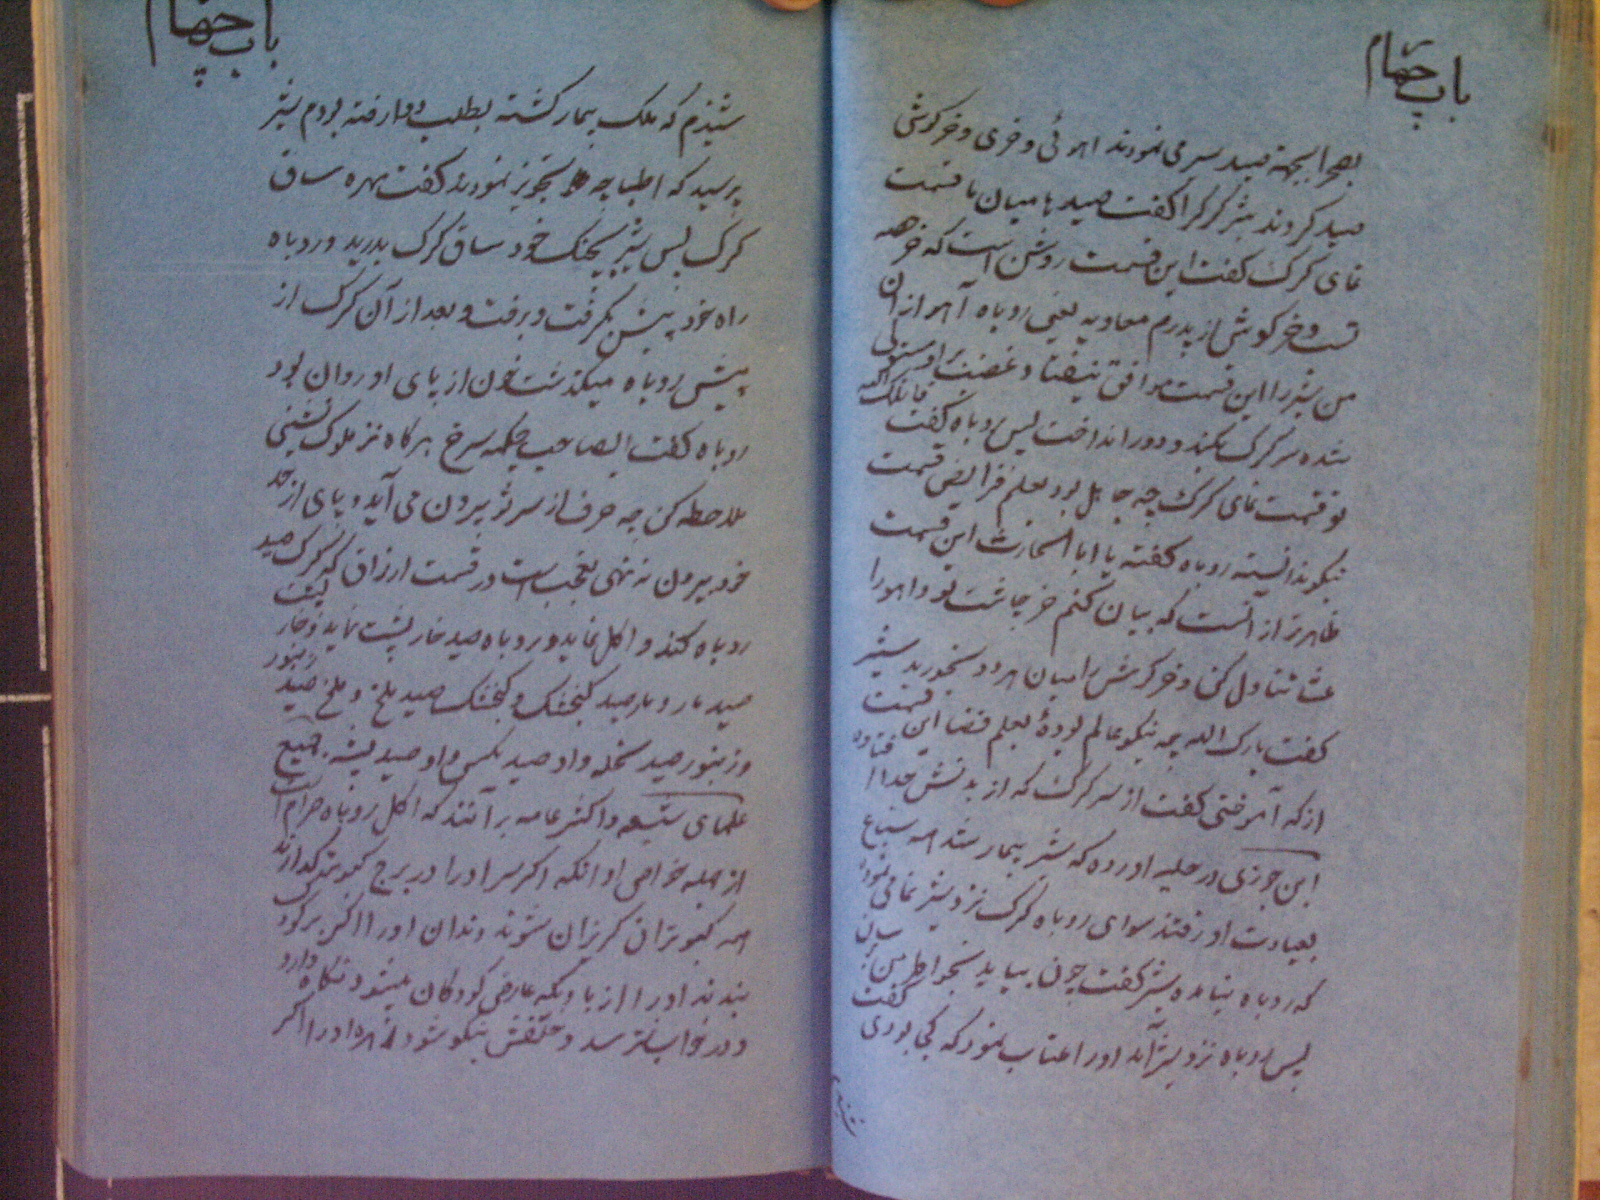 باب چهارم
بصحرا بجهة صید سیر می نمودند اهوئی و خری و خرکوشی
صید کردند شیر کرکرا کفت صید ها میان ما قسمت
نمای کرک کفت این قسمت روشن است که خر حصه
تست و خرکوش از پدرم معاویه یعنی روباه آهو از ان
من شیر را این قسمت موافق نیفتاد غضب بر او مستولی
شده سر کرک بکند و دور انداخت پس روباه کفت قاتلک الله
تو قسمت نمای کرک چه جاهل بود بعلم فرایض قسمت
نیکو ندانسته روباه کفته یا ابا الحارث این قسمت
ظاهرتر از انست که بیان کنم خر چاشت تو و اهو را
عشا تناول کنی و خرکوش را میان هر دو بخورید شیر
کفت بارک الله چه نیکو عالم بودهٔ بعلم قضا این قسمت
از که آموختی کفت از سر کرک که از بدنش جدا افتاده
ابن جوزی در حلیه اورده که شیر بیمار شد همه سباع
بعیادت او رفتند سوای روباه کرک نزد شیر نمامی نمود
که روباه نیامده شیر کفت چون بیاید بخواطر من برسان
پس روباه نزد شیر آمد اورا عتاب نمود که کجا بودی کفت
باب چهارم
شنیدم که ملک بیمار کشته بطلب دوا رفته بودم شیر
پرسید که اطبا چه تجویز نمودند کفت مهره ساق
کرک پس شیر بچنک خود ساق کرک بدرید و روباه
راه خود پیش بکرفت و برفت و بعد از آن کرک از
پیش روباه میکذشت خون از پای او روان بود
روباه کفت ایصاحب چکمه سرخ هرکاه نزد ملوک نشینی
ملاحظه کن چه حرف از سر تو بیرون می آید و پای از حد
خود بیرون نه نهی تعجب است در قسمت ارزاق که کرک صید
روباه کند و اکل نماید و روباه صید خار پشت نماید و خار پشت
صید مار و مار صید کنجشک و کنجشک صید ملخ و ملخ صید زنبور
و زنبور صید نحله و او صید مکس و او صید پشه. جمیع
علمای شیعه و اکثر عامه بر آنند که اکل روباه حرام است
از جمله خواص او انکه اکر سر اورا در برج کبوتر کذارند
همه کبوتران کریزان شوند دندان اورا اکر بر کودک
بندند اورا از باد که عارض کودکان میشود نکاه دارد
و در خواب نترسد و خلقش نیکو شود زهره اورا اکر